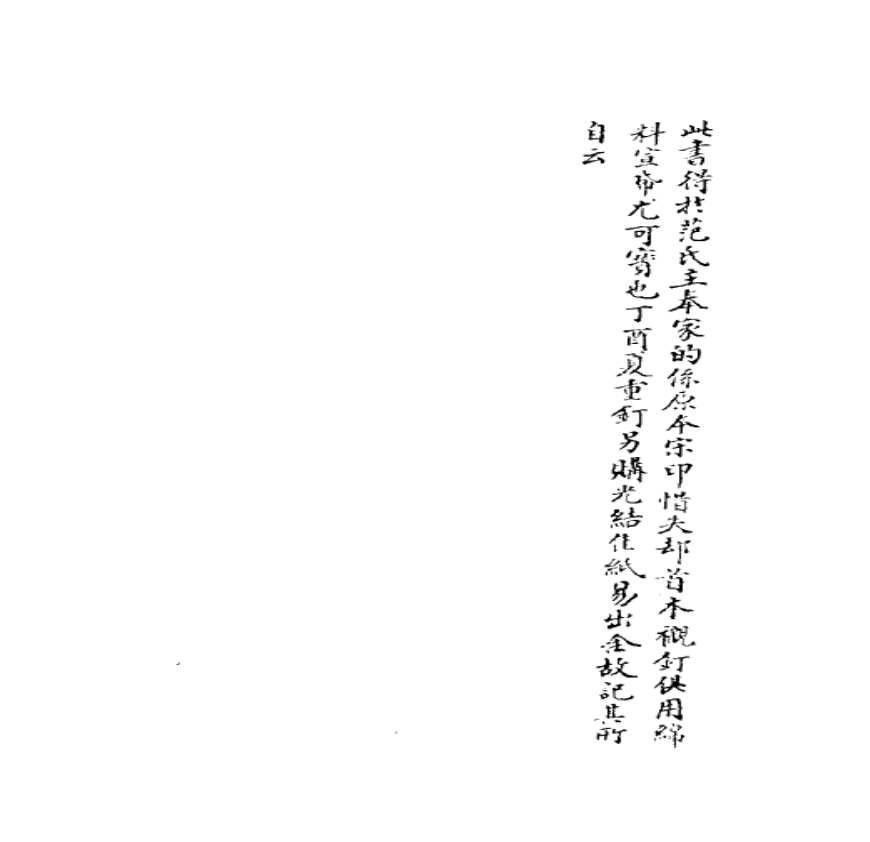 此書得於范氏主奉家的係原本宋印惜失却首本襯釘俱用綿
料宣帋尤可寳也丁酉夏重釘另購光結佳紙易出全故記其所
自云